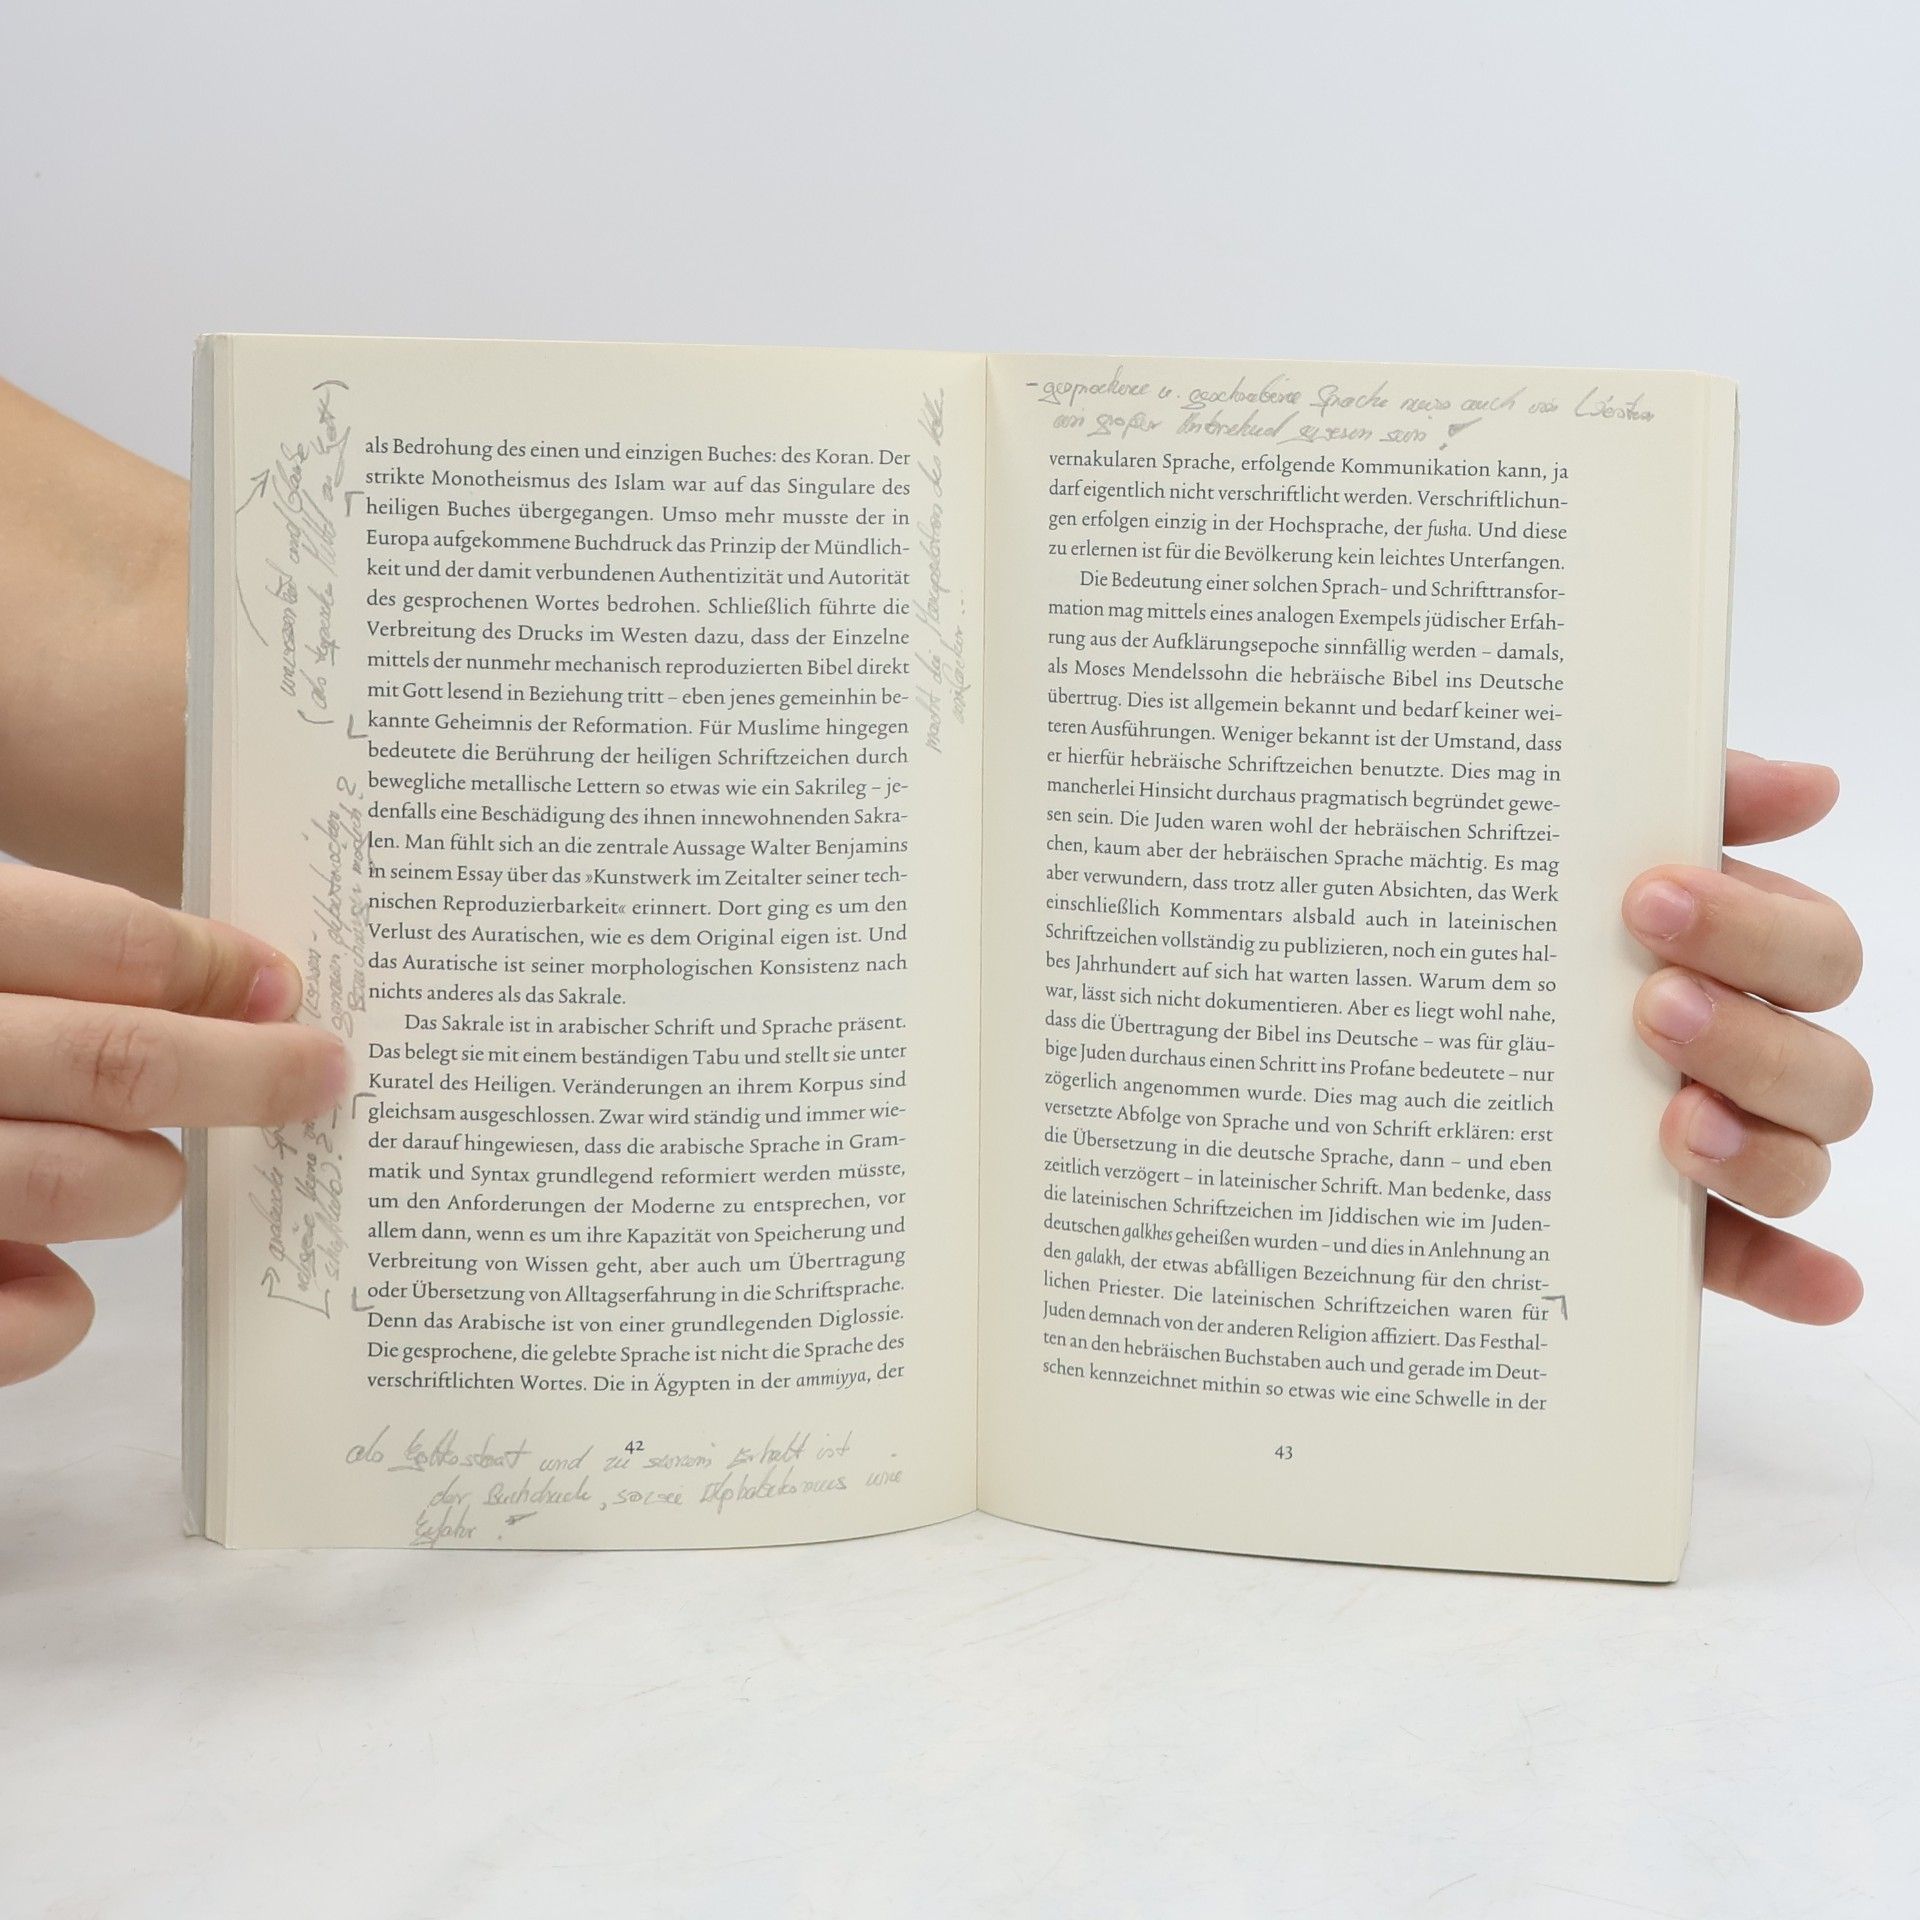 als Bedrohung des einen und einzigen Buches: des Koran. Der
strikte Monotheismus des Islam war auf das Singulare des
heiligen Buches übergegangen. Umso mehr musste der in
Europa aufgekommene Buchdruck das Prinzip der Mündlich-
keit und der damit verbundenen Authentizität und Autorität
des gesprochenen Wortes bedrohen. Schließlich führte die
Verbreitung des Drucks im Westen dazu, dass der Einzelne
mittels der nunmehr mechanisch reproduzierten Bibel direkt
mit Gott lesend in Beziehung tritt – eben jenes gemeinhin be-
kannte Geheimnis der Reformation. Für Muslime hingegen
bedeutete die Berührung der heiligen Schriftzeichen durch
bewegliche metallische Lettern so etwas wie ein Sakrileg – je-
denfalls eine Beschädigung des ihnen innewohnenden Sakra-
len. Man fühlt sich an die zentrale Aussage Walter Benjamins
in seinem Essay über das »Kunstwerk im Zeitalter seiner tech-
nischen Reproduzierbarkeit« erinnert. Dort ging es um den
Verlust des Auratischen, wie es dem Original eigen ist. Und
das Auratische ist seiner morphologischen Konsistenz nach
nichts anderes als das Sakrale.
Das Sakrale ist in arabischer Schrift und Sprache präsent.
Das belegt sie mit einem beständigen Tabu und stellt sie unter
Kuratel des Heiligen. Veränderungen an ihrem Korpus sind
gleichsam ausgeschlossen. Zwar wird ständig und immer wie-
der darauf hingewiesen, dass die arabische Sprache in Gram-
matik und Syntax grundlegend reformiert werden müsste,
um den Anforderungen der Moderne zu entsprechen, vor
allem dann, wenn es um ihre Kapazität von Speicherung und
Verbreitung von Wissen geht, aber auch um Übertragung
oder Übersetzung von Alltagserfahrung in die Schriftsprache.
Denn das Arabische ist von einer grundlegenden Diglossie.
Die gesprochene, die gelebte Sprache ist nicht die Sprache des
verschriftlichten Wortes. Die in Ägypten in der ammiyya, der
42
als und zu Erhalt ist
der Buchdruck
- gesprochene u. geschriebene Sprache auch
ein großer
vernakularen Sprache, erfolgende Kommunikation kann, ja
darf eigentlich nicht verschriftlicht werden. Verschriftlichun-
gen erfolgen einzig in der Hochsprache, der fusha. Und diese
zu erlernen ist für die Bevölkerung kein leichtes Unterfangen.
Die Bedeutung einer solchen Sprach- und Schrifttransfor-
mation mag mittels eines analogen Exempels jüdischer Erfah-
rung aus der Aufklärungsepoche sinnfällig werden – damals,
als Moses Mendelssohn die hebräische Bibel ins Deutsche
übertrug. Dies ist allgemein bekannt und bedarf keiner wei-
teren Ausführungen. Weniger bekannt ist der Umstand, dass
er hierfür hebräische Schriftzeichen benutzte. Dies mag in
mancherlei Hinsicht durchaus pragmatisch begründet gewe-
sen sein. Die Juden waren wohl der hebräischen Schriftzei-
chen, kaum aber der hebräischen Sprache mächtig. Es mag
aber verwundern, dass trotz aller guten Absichten, das Werk
einschließlich Kommentars alsbald auch in lateinischen
Schriftzeichen vollständig zu publizieren, noch ein gutes hal-
bes Jahrhundert auf sich hat warten lassen. Warum dem so
war, lässt sich nicht dokumentieren. Aber es liegt wohl nahe,
dass die Übertragung der Bibel ins Deutsche – was für gläu-
bige Juden durchaus einen Schritt ins Profane bedeutete – nur
zögerlich angenommen wurde. Dies mag auch die zeitlich
versetzte Abfolge von Sprache und von Schrift erklären: erst
die Übersetzung in die deutsche Sprache, dann – und eben
zeitlich verzögert – in lateinischer Schrift. Man bedenke, dass
die lateinischen Schriftzeichen im Jiddischen wie im Juden-
deutschen galkhes geheißen wurden – und dies in Anlehnung an
den galakh, der etwas abfälligen Bezeichnung für den christ-
lichen Priester. Die lateinischen Schriftzeichen waren für
Juden demnach von der anderen Religion affiziert. Das Festhal-
ten an den hebräischen Buchstaben auch und gerade im Deut-
schen kennzeichnet mithin so etwas wie eine Schwelle in der
43